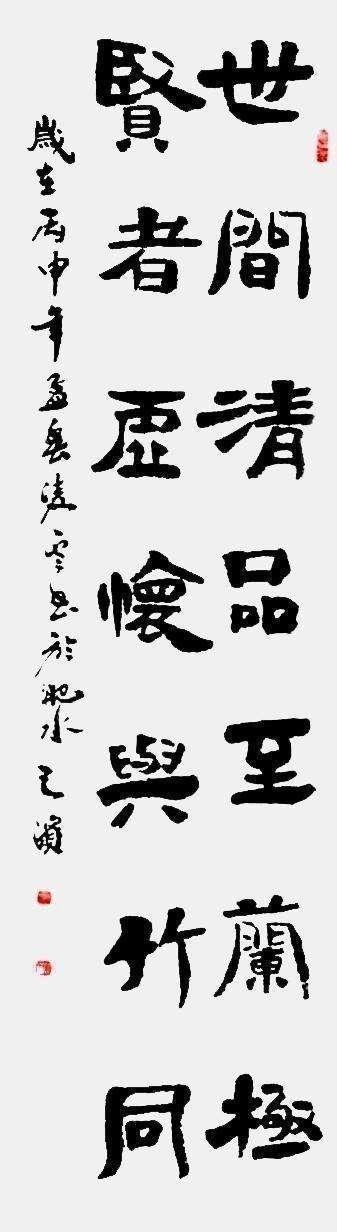 世間清品至蘭極
賢者虛懷與竹同
歲在丙申年孟春凌雲書於淝水之濱